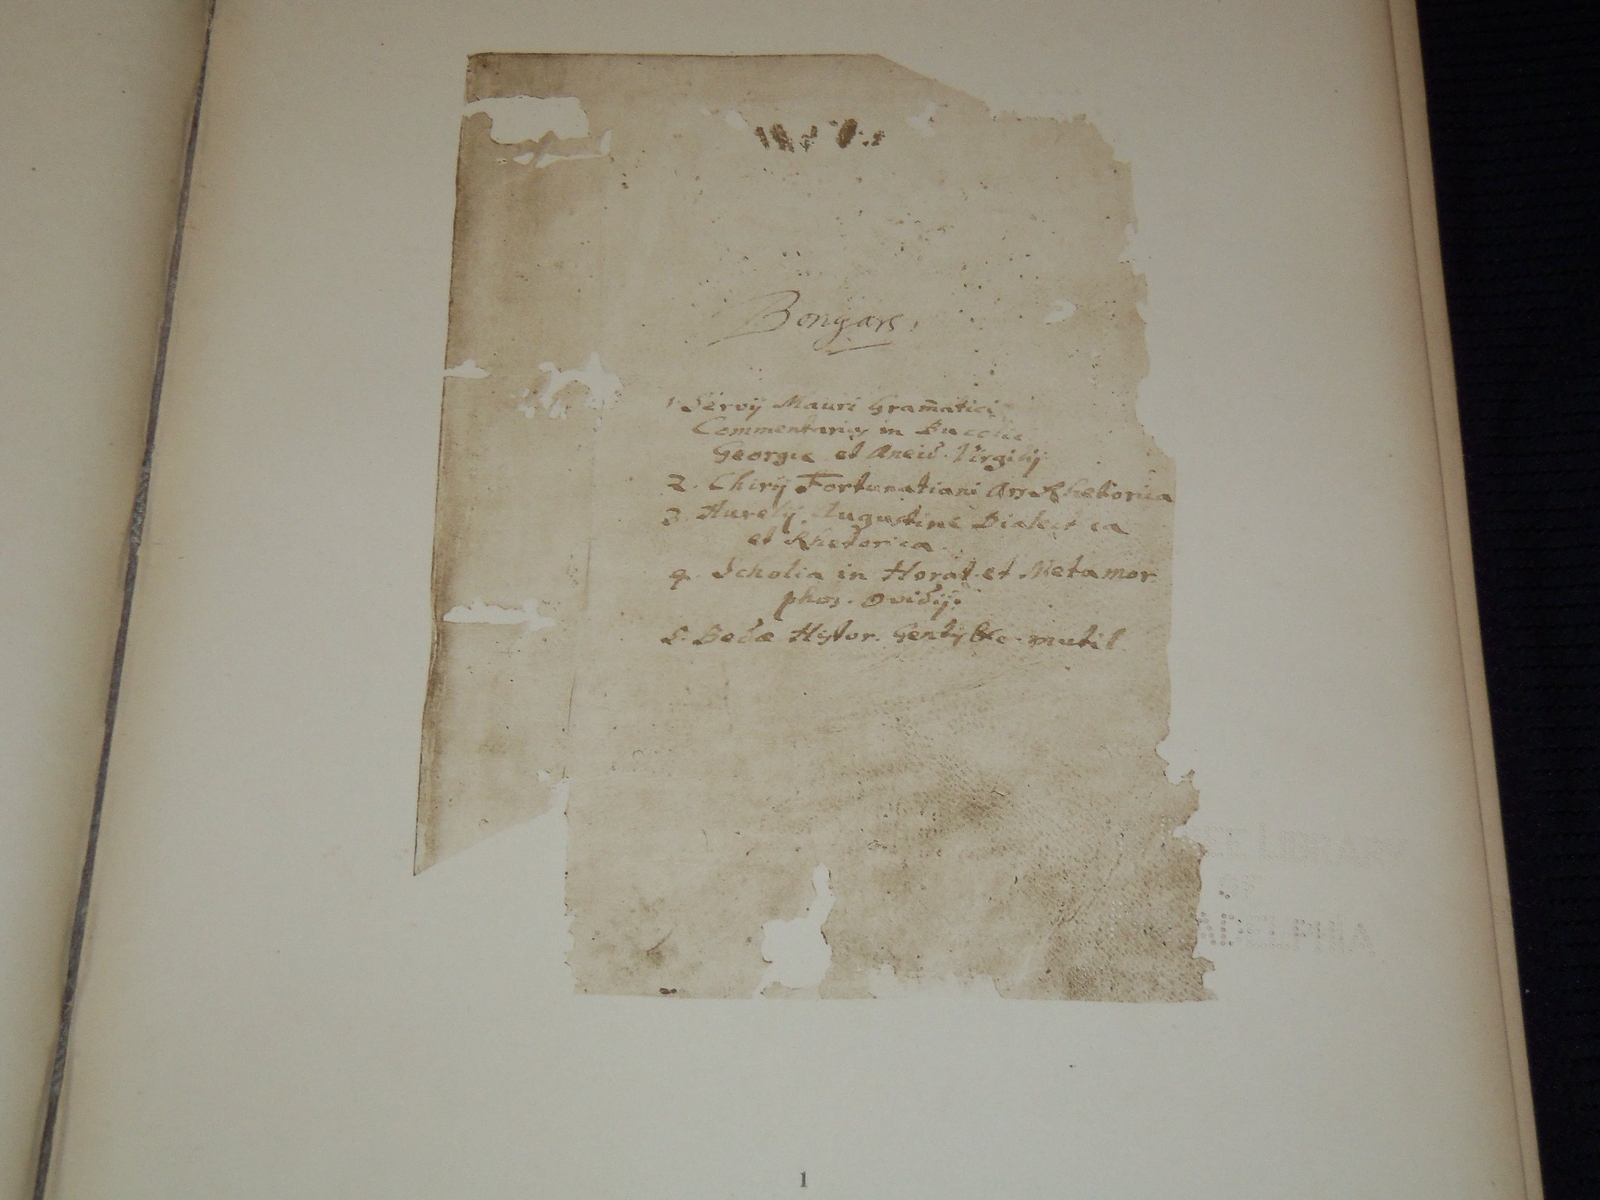 Bongars.
1. Servij Mauri Gram̄atici
Commentarius in Bucolic
Georgic et Aneid. Virgilij
2. Chirij Fortunatiani Ars Rhetorica
3. Aurelij Augustini Dialectica
et Rhetorica.
4. Scholia in Horat. et Metamor
phos. Ovidij.
5. Bedæ Hystor. Gentis mutil
1